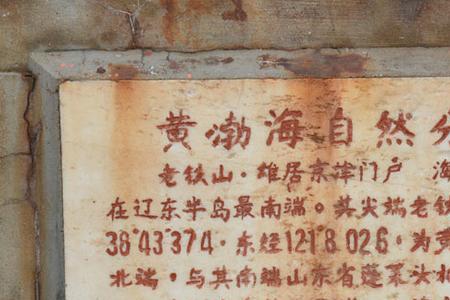 黄渤海自然分
老铁山·雄居京津门户 海
在辽东半岛最南端。其尖端老铁
38°43′37.4·东经121°8′02.6·为黄
北端·与其南端山东省蓬莱头北